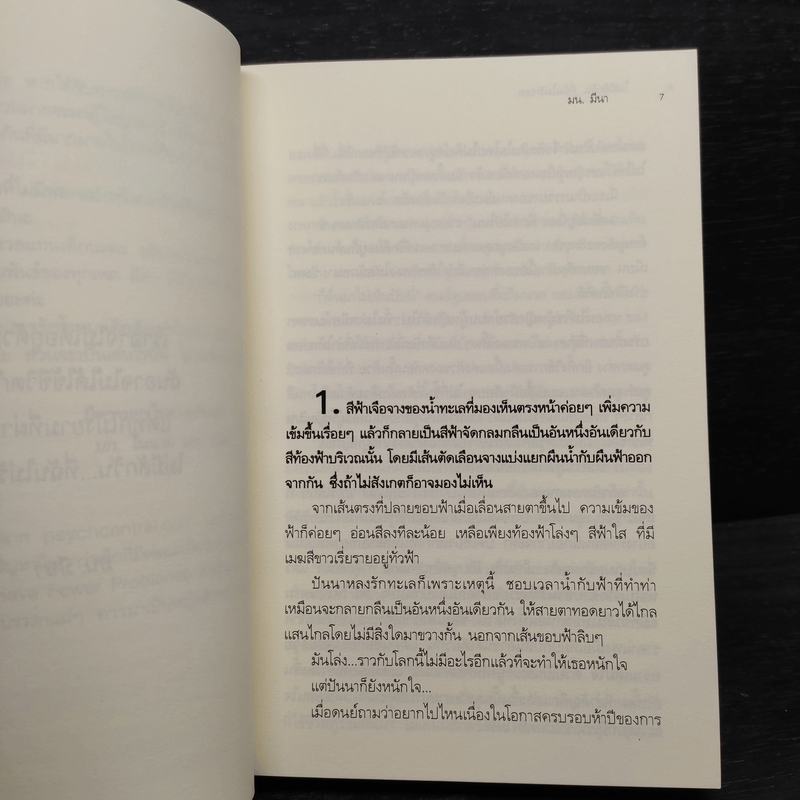 มน. มีนา 7
1. สีฟ้าเจือจางของน้ำทะเลที่มองเห็นตรงหน้าค่อยๆ เพิ่มความ
เข้มขึ้นเรื่อยๆ แล้วก็กลายเป็นสีฟ้าจัดกลมกลืนเป็นอันหนึ่งอันเดียวกับ
สีท้องฟ้าบริเวณนั้น โดยมีเส้นตัดเลือนจางแบ่งแยกผืนน้ำกับผืนฟ้าออก
จากกัน ซึ่งถ้าไม่สังเกตก็อาจมองไม่เห็น
จากเส้นตรงที่ปลายขอบฟ้าเมื่อเลื่อนสายตาขึ้นไป ความเข้มของ
ฟ้าก็ค่อยๆ อ่อนสีลงทีละน้อย เหลือเพียงท้องฟ้าโล่งๆ สีฟ้าใส ที่มี
เมฆสีขาวเรี่ยรายอยู่ทั่วฟ้า
ปันนาหลงรักทะเลก็เพราะเหตุนี้ ชอบเวลาน้ำกับฟ้าที่ทำท่า
เหมือนจะกลายกลืนเป็นอันหนึ่งอันเดียวกัน ให้สายตาทอดยาวได้ไกล
แสนไกลโดยไม่มีสิ่งใดมาขวางกั้น นอกจากเส้นขอบฟ้าลิบๆ
มันโล่ง...ราวกับโลกนี้ไม่มีอะไรอีกแล้วที่จะทำให้เธอหนักใจ
แต่ปันนาก็ยังหนักใจ...
เมื่อดนย์ถามว่าอยากไปไหนเนื่องในโอกาสครบรอบห้าปีของการ